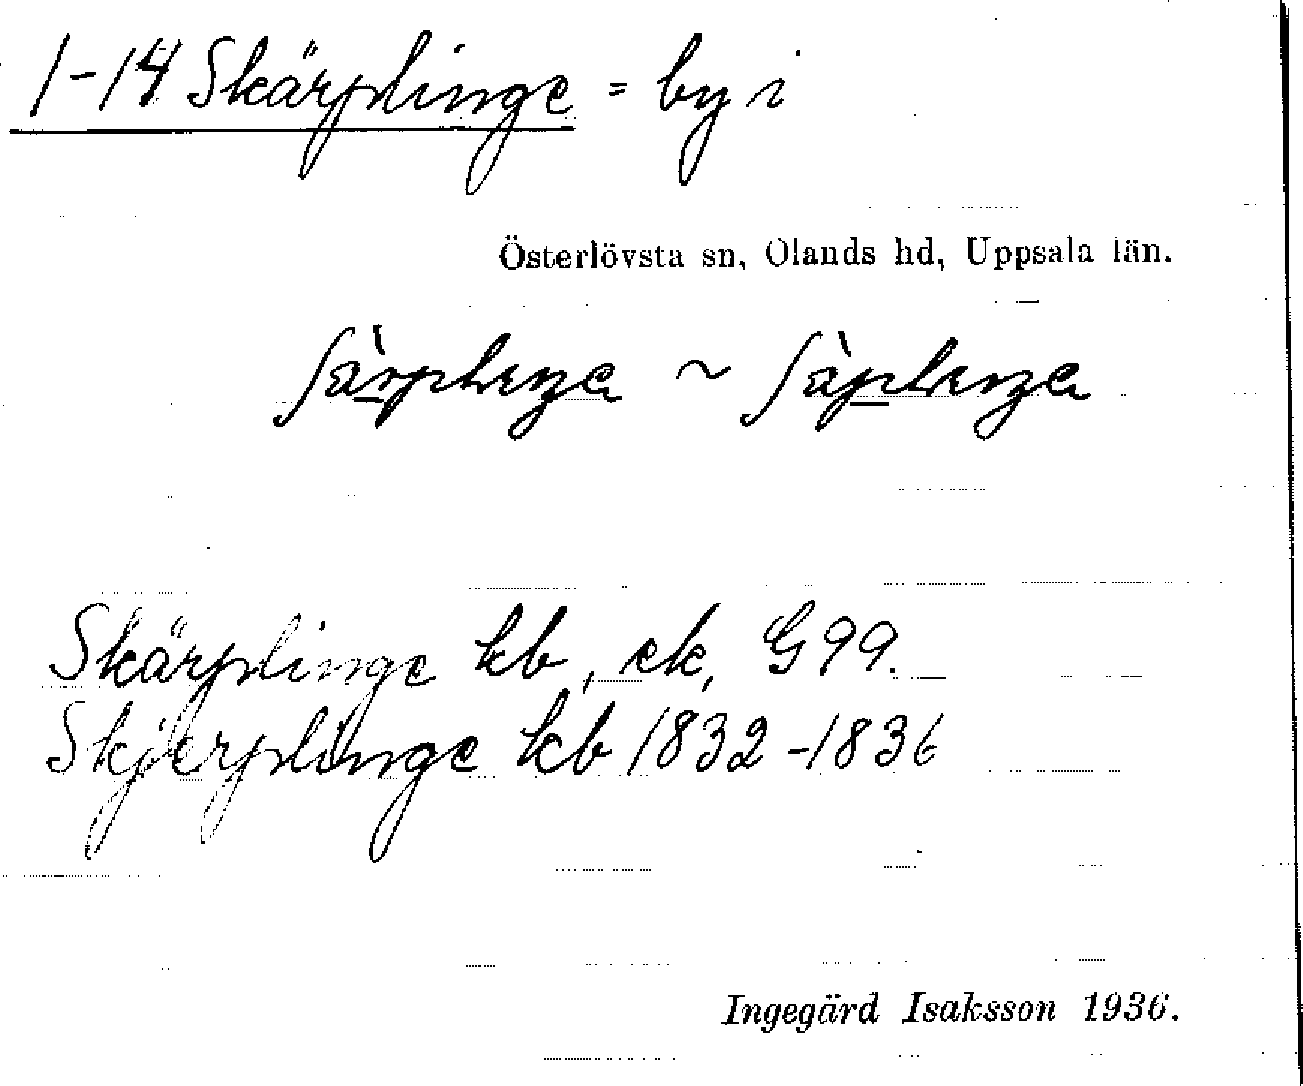 1-14 Skärplinge = by i
Österlövsta sn, Olands hd, Uppsala län.
~
Skärplinge kb, ek, G 99.
Skjerplinge kb 1832-1836
Ingegärd Isaksson 1936.